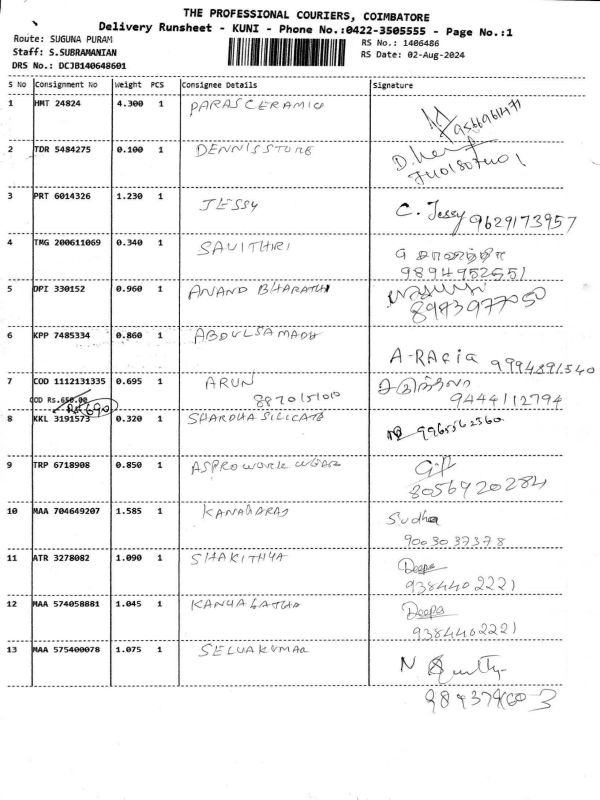 THE PROFESSIONAL COURIERS, COIMBATORE
Delivery Runsheet - KUNI - Phone No.:0422-3505555 - Page No.:1
Route: SUGUNA PURAM
RS No.: 1406486
Staff: S.SUBRAMANIAN
RS Date: 02-Aug-2024
DRS No.: DCJB140648601
S No Consignment No Weight PCS Consignee Details Signature
1 HMT 24824 4.300 1 PARAS CERAMIC
2 TDR 5484275 0.100 1 DENNIS STORE
7401807401
3 PRT 6014326 1.230 1 JESSY C. Jessy 9629173957
4 TMG 200611069 0.340 1 SAVITHRI
9894952551
5 DPI 330152 0.960 1 ANAND BHARATHI
8973977050
6 KPP 7485334 0.860 1 ABDULSAMADH
A-RAFIA 9994891540
7 COD 1112131335 0.695 1 ARUN
COD Rs.650.00 9444112794
690
8 KKL 3191573 0.320 1 SHARDHA SILICATE 9965562560
9 TRP 6718908 0.850 1 ASPRO WORK WEAR
8056920284
10 MAA 704649207 1.585 1 KANAGARAJ Sudha
9003037378
11 ATR 3278082 1.090 1 SHAKITHYA Deepa
9384402221
12 MAA 574058881 1.045 1 KANYALATHA Deepa
9384402221
13 MAA 575400078 1.075 1 SELVAKUMAR N